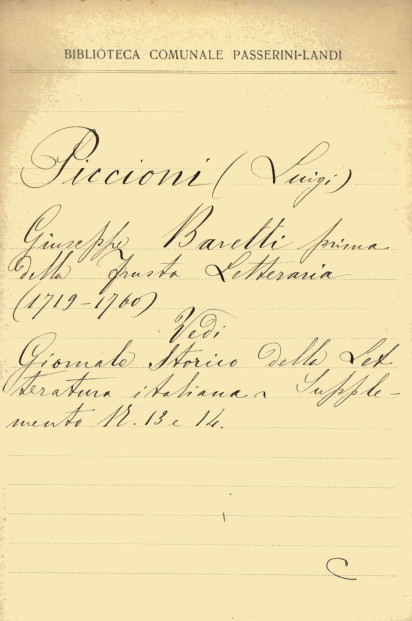 BIBLIOTECA COMUNALE PASSERINI-LANDI
Piccioni (Luigi)
Giuseppe Baretti prima
della Frusta Letteraria
(1719-1760)
Vedi
Giornale Storico della Let
teratura italiana Supple-
mento N. 13 e 14.
C